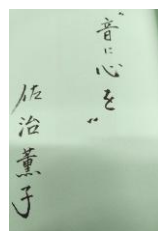 “音に心を”
佐治薫子